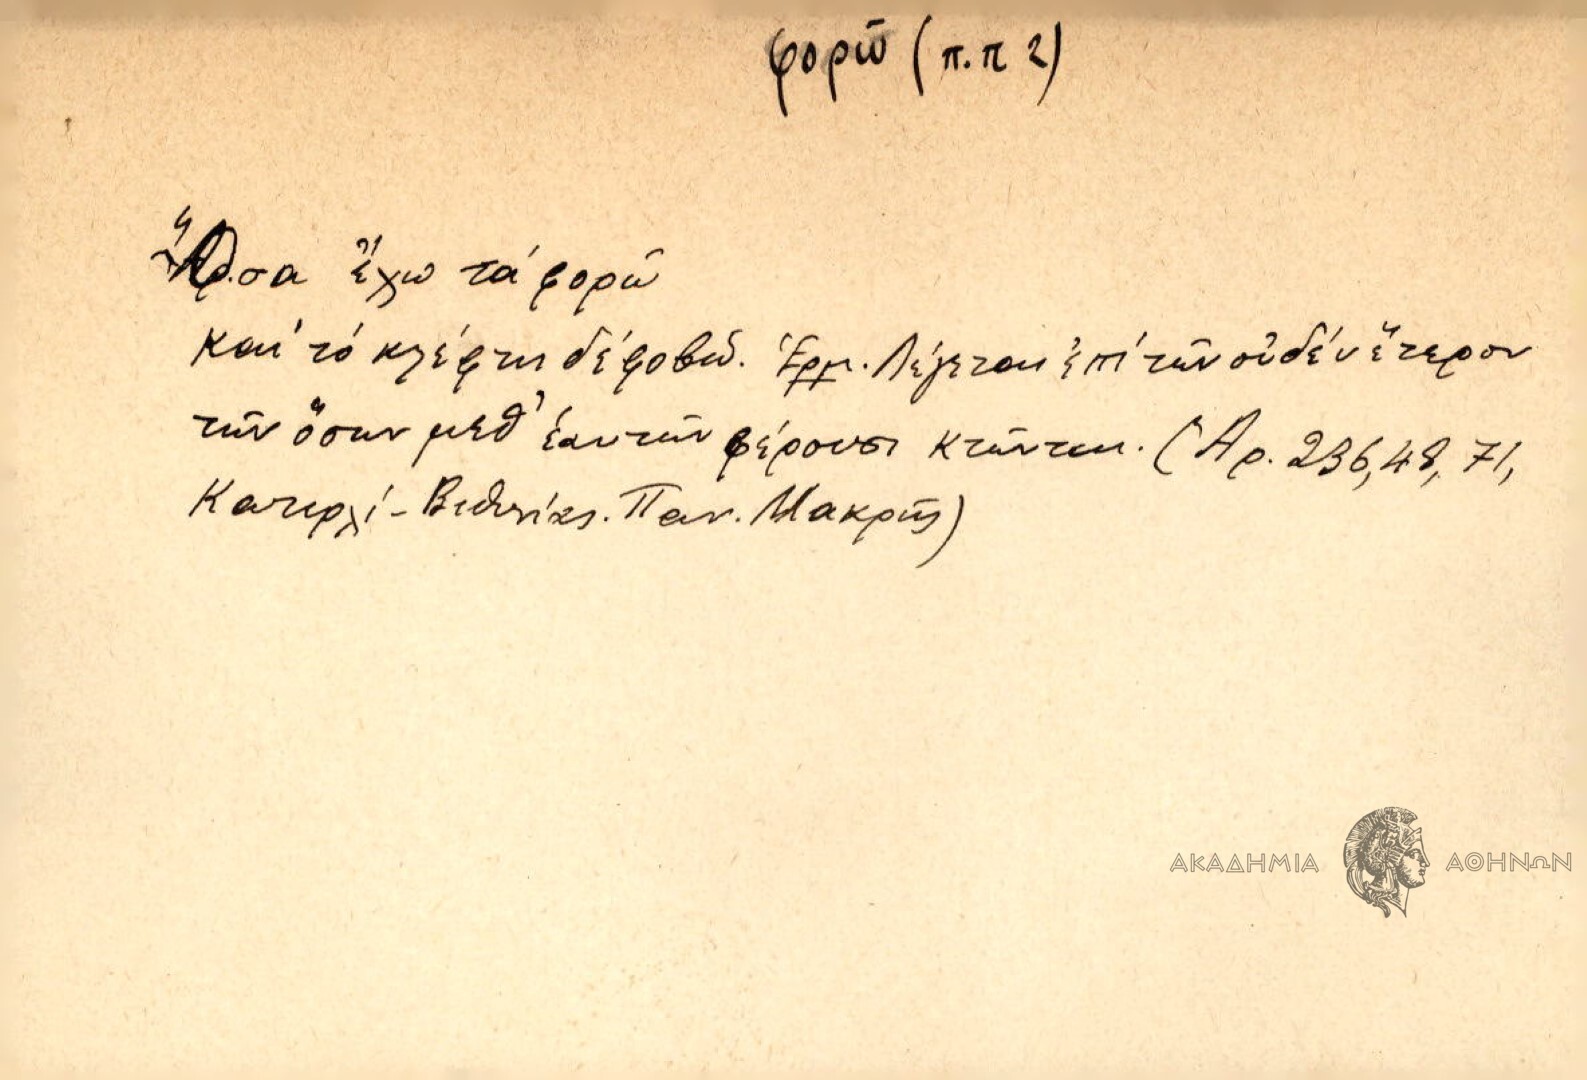 φορῶ (π.π 2)
Ὅσα ἔχω τά φορῶ
καί τό κλέφτη δέ φοβῶ. Ἑρμ. Λέγεται ἐπί τῶν οὐδέν ἕτερον
τῶν ὅσων μεθ' ἑαυτῶν φέρουσι κτῶνται. (Ἀρ. 236, 48, 71,
Κατιρλί - Βιθυνίας. Παν. Μακρῆς)
ΑΚΑΔΗΜΙΑ ΑΘΗΝΩΝ